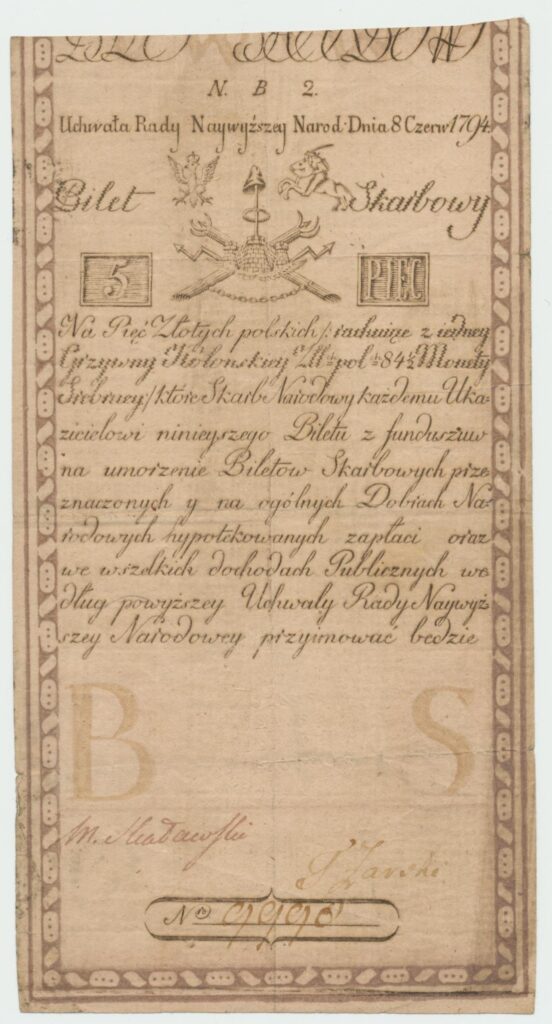 N. B 2.
Uchwała Rady Naywyższey Narod. Dnia 8 Czerw 1794.
Bilet Skarbowy
5 PIĘC
Na Pięć Złotych polskich /: rachuiąc z iedney
Grzywny Kolonskiey Złł. pol. 84½ Monety
Srebrney/ które Skarb Narodowy każdemu Uka-
zicielowi ninieyszego Biletu z funduszuw
na umorzenie Biletow Skarbowych prze
znaczonych y na ogólnych Dobrach Na-
rodowych hypotekowanych zapłaci oraz
we wszelkich dochodach Publicznych we
dług powyższey Uchwały Rady Naywyż-
szey Narodowey przyimować będzie
B S
M. Skadawski
Zarski
No 9990